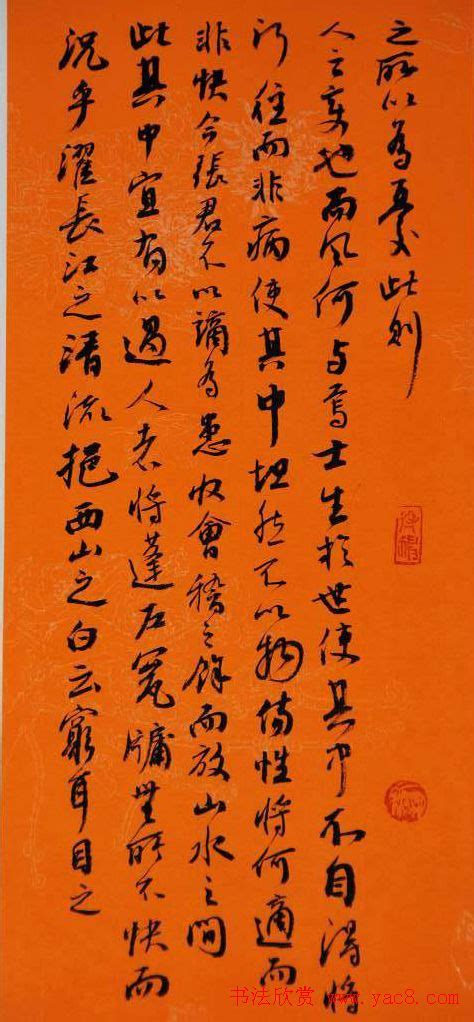 之所以為憂此則
人之變也而風何与焉士生於世使其中不自得將
何往而非病使其中坦然不以物傷性將何適而
非快今張君不以謫為患收會稽之餘而放山水之間
此其中宜有以過人者將蓬戶甕牖無所不快而
況乎濯長江之清流挹西山之白云窮耳目之
书法欣赏 www.yac8.com